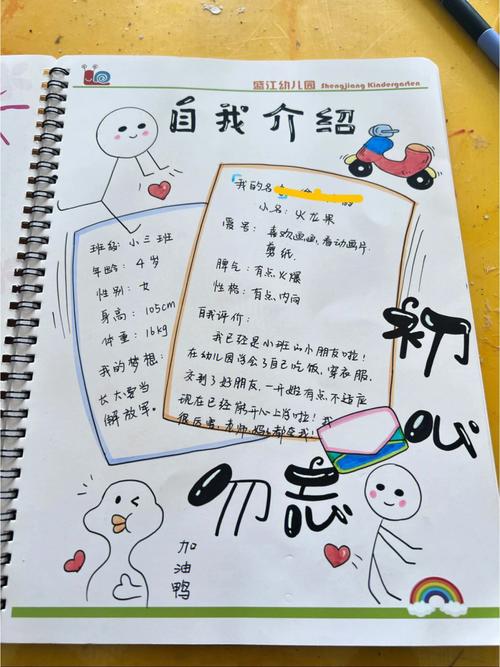 盛江幼儿园 Shengjiang Kindergarten
自我介绍
我的名
小名：火龙果
爱号：喜欢画画，看动画片，
剪纸．
脾气：有点火爆
性格：有点内向
自我评价：
我已经是小班的小朋友啦！
在幼儿园学会了自己吃饭，穿衣服，
交到了好朋友，一开始有点不适应
现在已经能开心上学啦！我
很厉害，老师，妈妈都夸我！
班级：小三班
年龄：4岁
性别：女
身高：105cm
体重：16kg
我的梦想：
长大要当
解放军．
初心
勿忘
加油鸭